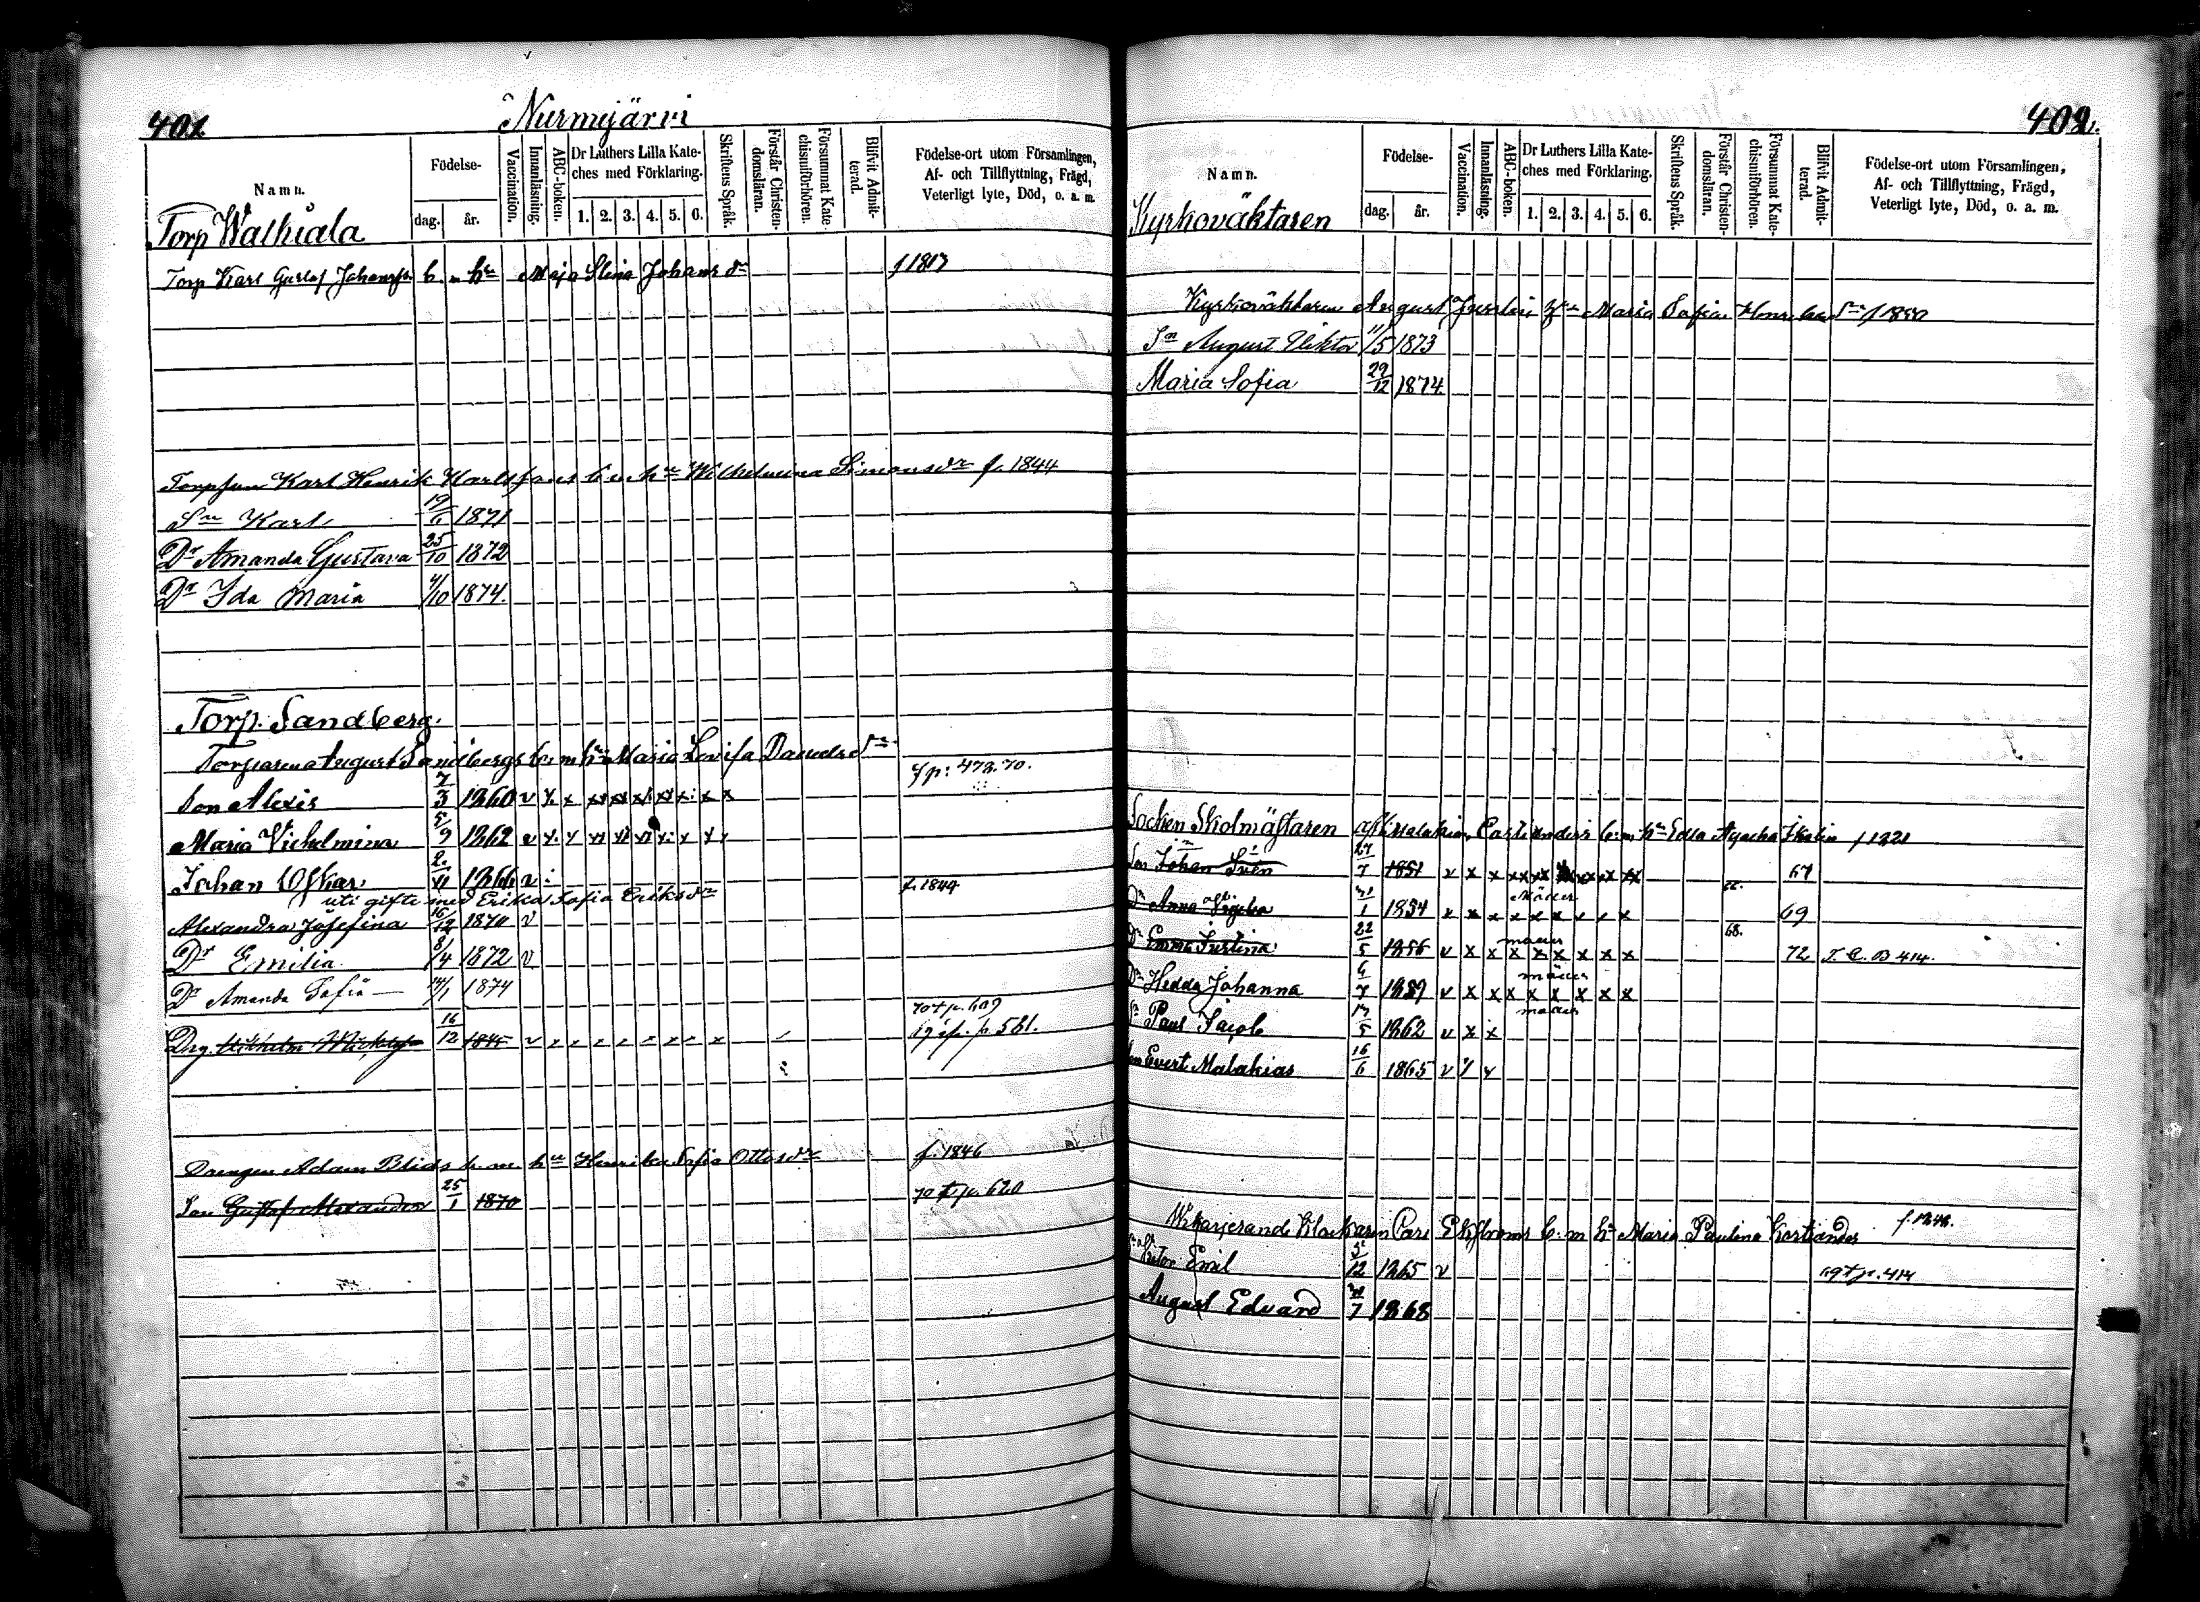 401
Nurmijärvi
Namn.
Födelse-
dag. år.
Vaccination.
Innanläsning.
ABC-boken.
Dr Luthers Lilla Kate-
ches med Förklaring.
1. 2. 3. 4. 5. 6.
Skriftens Språk.
Förstår Christen-
domsläran.
Försummat Kate-
chismiförhören.
Blifvit Admit-
terad.
Födelse-ort utom Församlingen,
Af- och Tillflyttning, Frägd,
Veterligt lyte, Död, o. a. m.
Torp Walkiala
Torp Karl Gustaf Johansson b. m hu Maja Stina Johans dr f 1817
Torpson Karl Henrik Karlssons b. m. hu Wilhelmina Simonsdr f. 1844
Sn Karl 19/6 1871
Dr Amanda Gustava 25/10 1872
Dr Ida Maria 4/10 1874.
Torp. Sandberg.
Torparen August Sandbergs b. m hu Maria Lovisa Davids dr
Son Alexis 7/3 1860 v x x x x x x x x x x yp: 472. 70.
Maria Vilhelmina 5/9 1862 v x x x x x x x x x
Johan Oskar 2/11 1866 v
uti gifte med Erika Sofia Eriksdr f. 1844
Alexandra Josefina 16/12 1870 v
Dr Emilia 8/4 1872 v
Dr Amanda Sofia 14/1 1874
70 t p. 609
Drg. 16/12 1845 v p. 561.
Drengen Adam Blids b. m. hu Henrika Sofia Ottosdr f. 1846
Son Gustaf Alexander 25/1 1870 70 t p. 620
402.
Namn.
Födelse-
dag. år.
Vaccination.
Innanläsning.
ABC-boken.
Dr Luthers Lilla Kate-
ches med Förklaring.
1. 2. 3. 4. 5. 6.
Skriftens Språk.
Förstår Christen-
domsläran.
Försummat Kate-
chismiförhören.
Blifvit Admit-
terad.
Födelse-ort utom Församlingen,
Af- och Tillflyttning, Frägd,
Veterligt lyte, Död, o. a. m.
Kyrkoväktaren
Kyrkoväktaren August Juslin hu Maria Sofia Henriks dr f 1850
Sn August Viktor 11/5 1873
Maria Sofia 29/12 1874.
Socken Skolmästaren b. m. hu Edla Agatha f 1821
Son Johan Sven 27/7 1851 v x x x x x x x x x 67
Dr Anna 1 1854 v x x x x x x x x 69
Dr Emma Justina 22/5 1856 v x x x x x x x x 68. 72 414.
Dr Hedda Johanna 6/7 1859 v x x x x x x x x
Sn Paul Jacob 17/5 1862 v x x
Son Evert Malakias 16/6 1865 v
Vikarjerande Klockaren Carl Ekströms b. m hu Maria Paulina f. 1842.
Viktor Emil 12 1865 v 69 t p. 414
August Edvard 7 1868